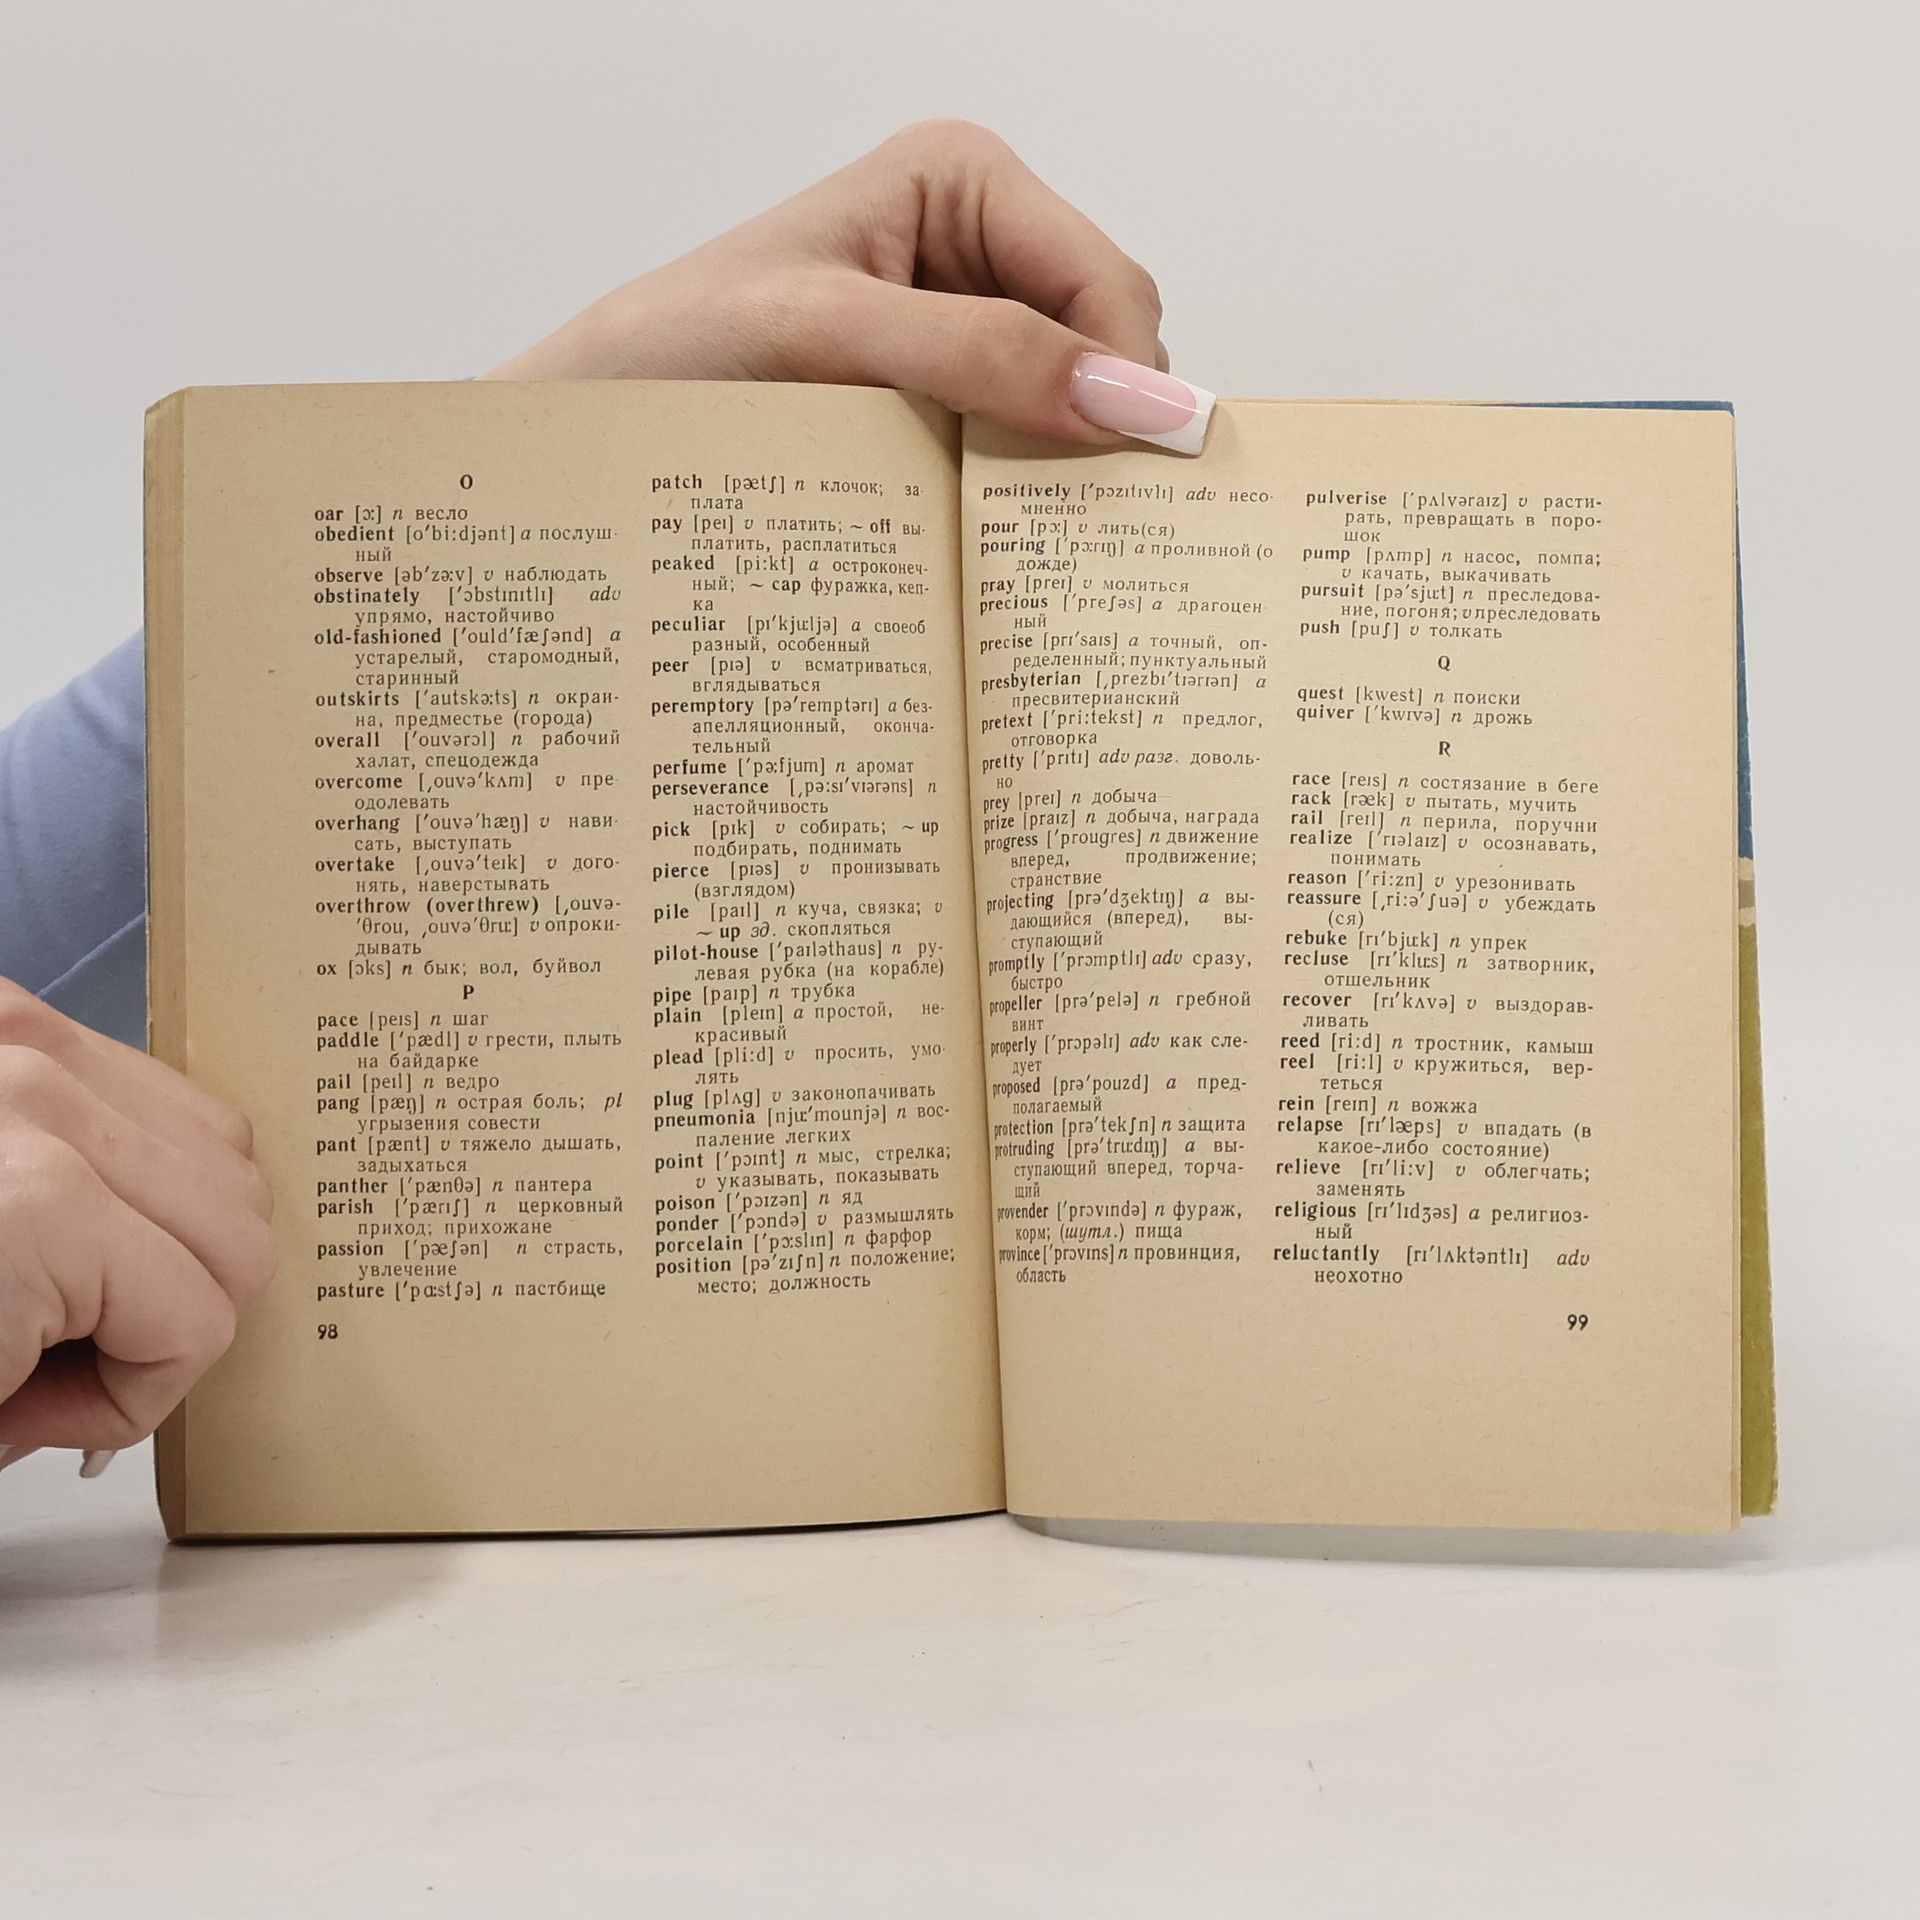 O
oar [ɔ:] n весло
obedient [o'bi:djənt] a послуш-
ный
observe [əb'zə:v] v наблюдать
obstinately ['ɔbstınıtlı] adv
упрямо, настойчиво
old-fashioned ['ould'fæʃənd] a
устарелый, старомодный,
старинный
outskirts ['autskə:ts] n окраи-
на, предместье (города)
overall ['ouvərɔl] n рабочий
халат, спецодежда
overcome [ˌouvə'kʌm] v пре-
одолевать
overhang ['ouvə'hæŋ] v нави-
сать, выступать
overtake [ˌouvə'teık] v дого-
нять, наверстывать
overthrow (overthrew) [ˌouvə-
'θrou, ˌouvə'θru:] v опроки-
дывать
ox [ɔks] n бык; вол, буйвол
P
pace [peıs] n шаг
paddle ['pædl] v грести, плыть
на байдарке
pail [peıl] n ведро
pang [pæŋ] n острая боль; pl
угрызения совести
pant [pænt] v тяжело дышать,
задыхаться
panther ['pænθə] n пантера
parish ['pærıʃ] n церковный
приход; прихожане
passion ['pæʃən] n страсть,
увлечение
pasture ['pɑ:stʃə] n пастбище
98
patch [pætʃ] n клочок; за-
плата
pay [peı] v платить; ~ off вы-
платить, расплатиться
peaked [pi:kt] a остроконеч-
ный; ~ cap фуражка, кеп-
ка
peculiar [pı'kju:ljə] a своеоб
разный, особенный
peer [pıə] v всматриваться,
вглядываться
peremptory [pə'remptərı] a без-
апелляционный, оконча-
тельный
perfume ['pə:fjum] n аромат
perseverance [ˌpə:sı'vıərəns] n
настойчивость
pick [pık] v собирать; ~ up
подбирать, поднимать
pierce [pıəs] v пронизывать
(взглядом)
pile [paıl] n куча, связка; v
~ up зд. скопляться
pilot-house ['paıləthaus] n ру-
левая рубка (на корабле)
pipe [paıp] n трубка
plain [pleın] a простой, не-
красивый
plead [pli:d] v просить, умо-
лять
plug [plʌg] v законопачивать
pneumonia [nju:'mounjə] n вос-
паление легких
point ['pɔınt] n мыс, стрелка;
v указывать, показывать
poison ['pɔızən] n яд
ponder ['pɔndə] v размышлять
porcelain ['pɔ:slın] n фарфор
position [pə'zıʃn] n положение;
место; должность
positively ['pɔzıtıvlı] adv несо-
мненно
pour [pɔ:] v лить(ся)
pouring ['pɔ:rıŋ] a проливной (о
дожде)
pray [preı] v молиться
precious ['preʃəs] a драгоцен-
ный
precise [prı'saıs] a точный, оп-
ределенный; пунктуальный
presbyterian [ˌprezbı'tıərıən] a
пресвитерианский
pretext ['pri:tekst] n предлог,
отговорка
pretty ['prıtı] adv разг. доволь-
но
prey [preı] n добыча
prize [praız] n добыча, награда
progress ['prougres] n движение
вперед, продвижение;
странствие
projecting [prə'dʒektıŋ] a вы-
дающийся (вперед), вы-
ступающий
promptly ['prɔmptlı] adv сразу,
быстро
propeller [prə'pelə] n гребной
винт
properly ['prɔpəlı] adv как сле-
дует
proposed [prə'pouzd] a пред-
полагаемый
protection [prə'tekʃn] n защита
protruding [prə'tru:dıŋ] a вы-
ступающий вперед, торча-
щий
provender ['prɔvındə] n фураж,
корм; (шутл.) пища
province ['prɔvıns] n провинция,
область
pulverise ['pʌlvəraız] v расти-
рать, превращать в поро-
шок
pump [pʌmp] n насос, помпа;
v качать, выкачивать
pursuit [pə'sju:t] n преследова-
ние, погоня; v преследовать
push [puʃ] v толкать
Q
quest [kwest] n поиски
quiver ['kwıvə] n дрожь
R
race [reıs] n состязание в беге
rack [ræk] v пытать, мучить
rail [reıl] n перила, поручни
realize ['rıəlaız] v осознавать,
понимать
reason ['ri:zn] v урезонивать
reassure [ˌri:ə'ʃuə] v убеждать
(ся)
rebuke [rı'bju:k] n упрек
recluse [rı'klu:s] n затворник,
отшельник
recover [rı'kʌvə] v выздорав-
ливать
reed [ri:d] n тростник, камыш
reel [ri:l] v кружиться, вер-
теться
rein [reın] n вожжа
relapse [rı'læps] v впадать (в
какое-либо состояние)
relieve [rı'li:v] v облегчать;
заменять
religious [rı'lıdʒəs] a религиоз-
ный
reluctantly [rı'lʌktəntlı] adv
неохотно
99